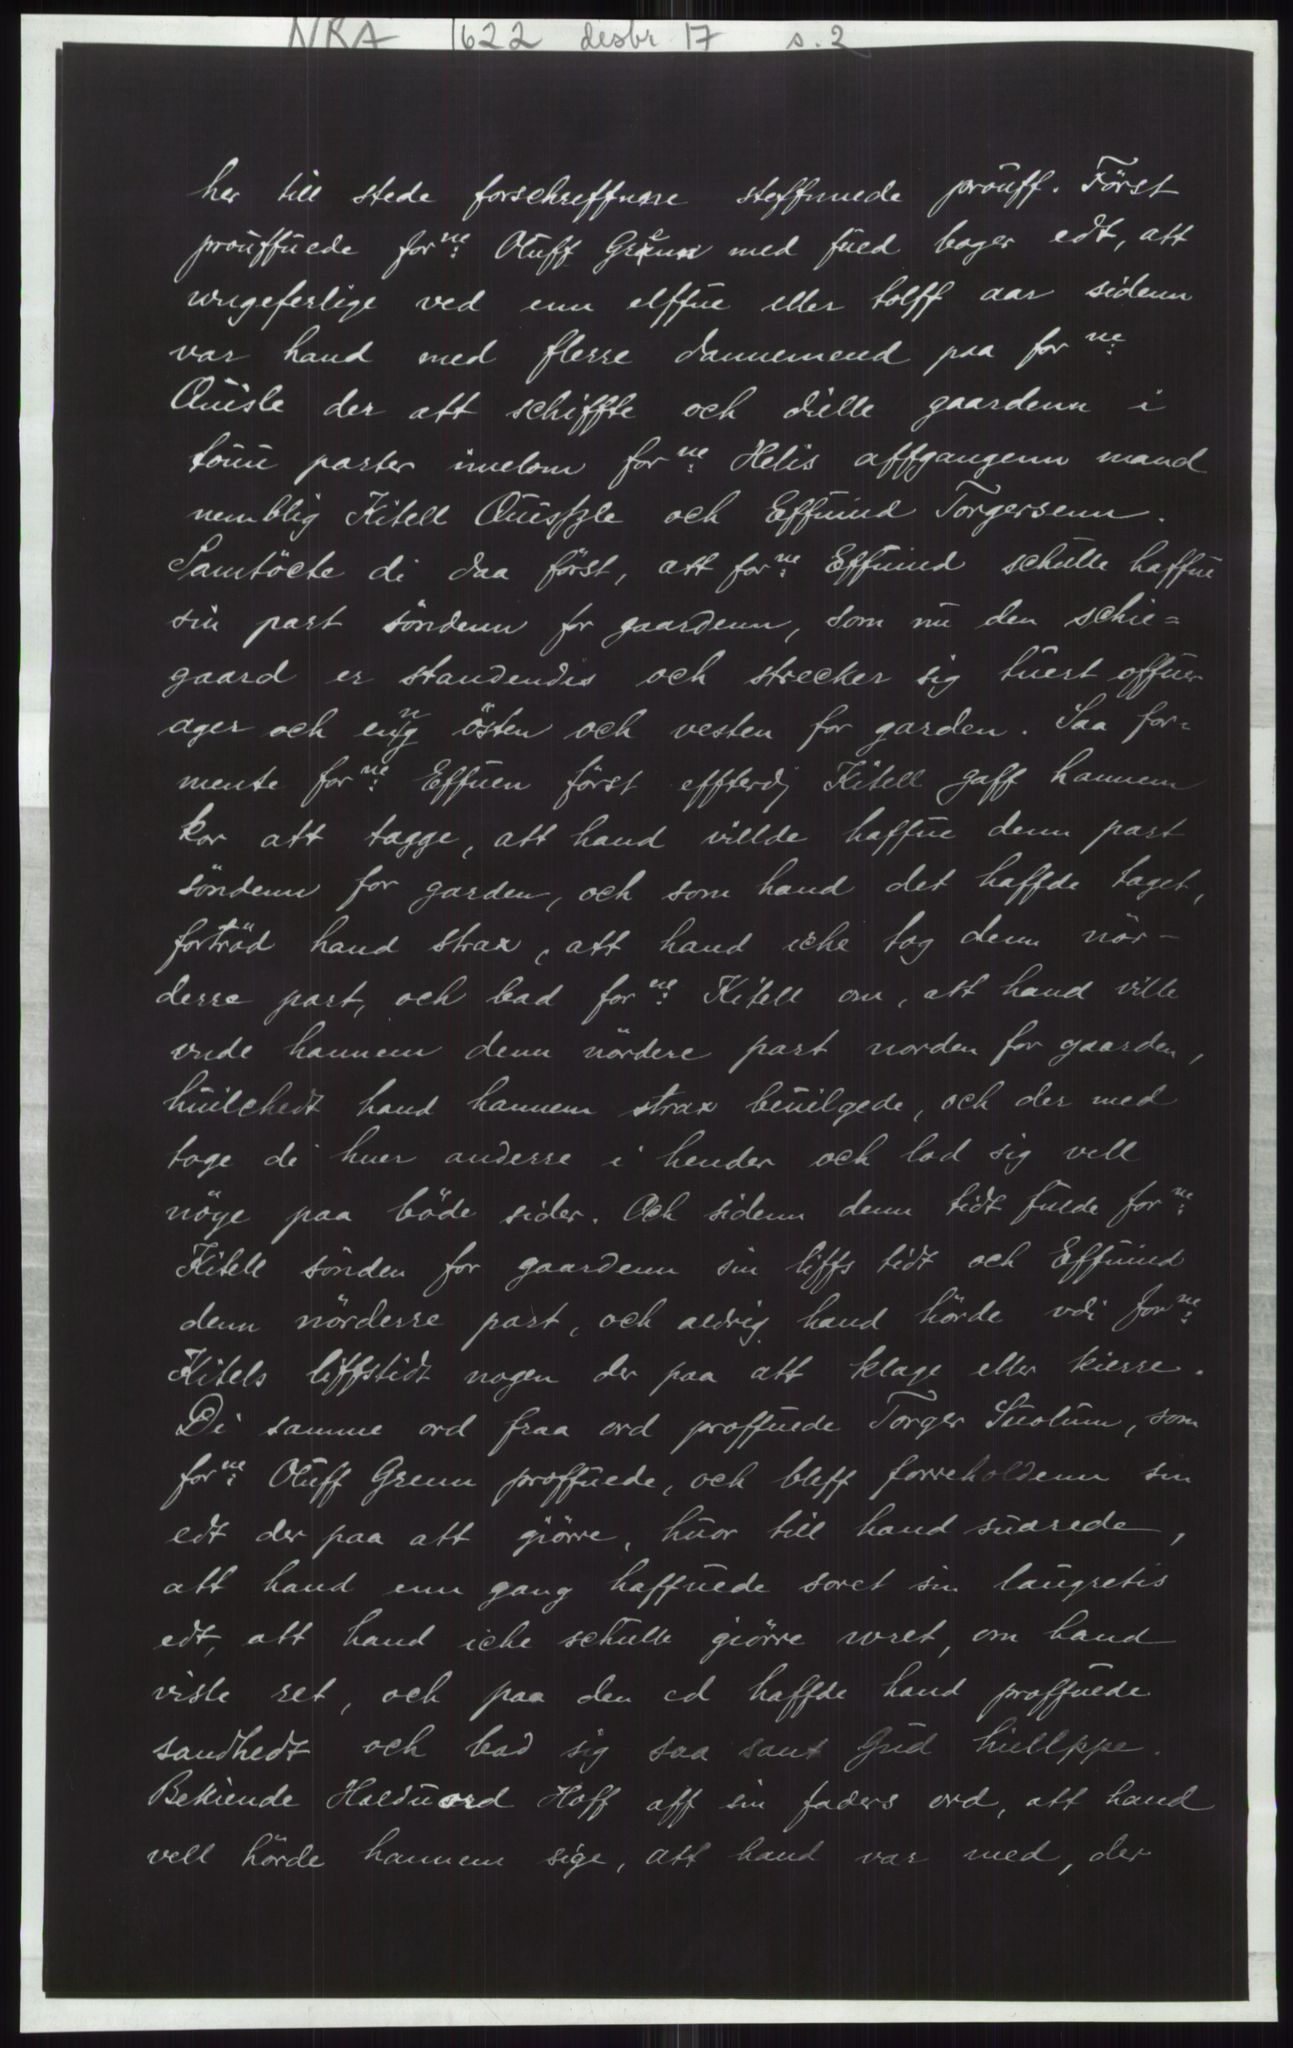 NRA 1622 desbr 17 s. 2
her till stede forschreffnne steffnnede prouff. Först
prouffuede forne: Oluff Grenn med fued boger edt, att
wngeferlige ved enn elffue eller tolff aar sidenn
var hand med flerre dannemend paa forne:
Quisle der att schiffte och dielle gaardenn i
touu parter imelom forne: Helis affgangenn mand
nemblig Kitell Quisszle och Effuind Torgersenn.
Samtöcte di daa först, att forne: Effuind schulle haffue
sin part söndenn for gaardenn, som nu den schie=
gaard er standendis och strecker sig tuert offuer
ager och eng östen och vesten for garden. Saa for=
mente forne: Effuen först effterdj Kitell gaff hannem
kor att tagge, att hand villde haffue denn part
söndenn for garden, och som hand det haffde taget,
fortröd hand strax, att hand iche tog denn nör-
derre part, och bad forne: Kitell om, att hand ville
vnde hannem denn nördere part norden for gaarden,
huilchedt hand hannem strax beuilgede, och der med
toge di huer anderre i hender och lod sig vell
nöye paa böde sider. Och sidenn denn tidt fulde forne:
Kitell sönden for gaardenn sin liffs tidt och Effuind
denn nörderre part, och aldrig hand hörde vdi forne:
Kitels liffstidt nogen der paa att klage eller kierre.
Di samme ord fraa ord proffuede Torger Suolum, som
forne: Oluff Grenn proffuede, och bleff forreholdenn sin
edt der paa att giörre, huor till hand suarede,
att hand enn gang haffuede soret sin laugretis
edt, att hand iche schulle giörre wret, om hand
viste ret, och paa den ed haffde hand proffuede
sandhedt och bad sig saa sant Gud hiellppe.
Bekiende Halduord Hoff aff sin faders ord, att hand
vell hörde hannem sige, att hand var med, der